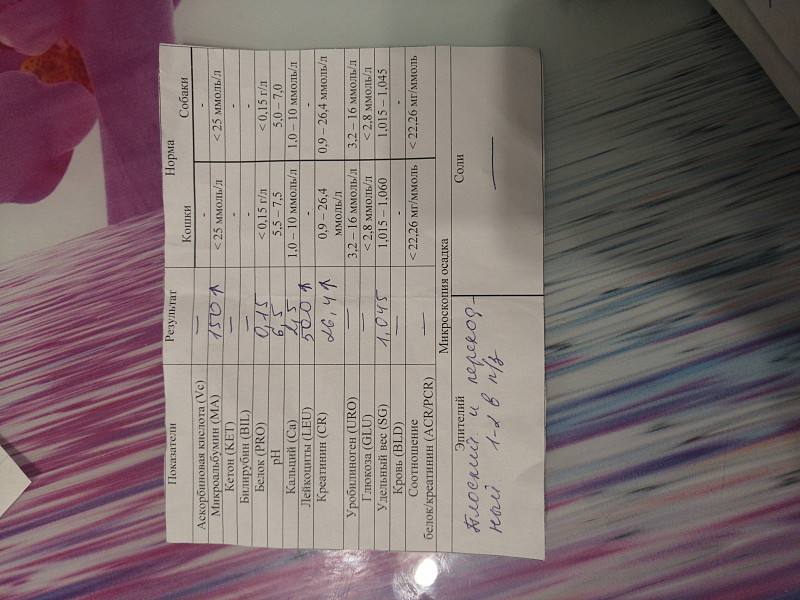 Показатели Результат Норма
Кошки Собаки
Аскорбиновая кислота (Vc) — - -
Микроальбумин (MA) 150↑ < 25 ммоль/л < 25 ммоль/л
Кетон (KET) — - -
Билирубин (BIL) — - -
Белок (PRO) 0,15 < 0,15 г/л < 0,15 г/л
pH 6,5 5,5 – 7,5 5,0 – 7,0
Кальций (Ca) 2,5 1,0 – 10 ммоль/л 1,0 – 10 ммоль/л
Лейкоциты (LEU) 500↑ - -
Креатинин (CR) 26,4↑ 0,9 – 26,4 ммоль/л 0,9 – 26,4 ммоль/л
Уробилиноген (URO) — 3,2 – 16 ммоль/л 3,2 – 16 ммоль/л
Глюкоза (GLU) — < 2,8 ммоль/л < 2,8 ммоль/л
Удельный вес (SG) 1,045 1,015 – 1,060 1,015 – 1,045
Кровь (BLD) — - -
Соотношение
белок/креатинин (ACR/PCR) — < 22,26 мг/ммоль < 22,26 мг/ммоль
Микроскопия осадка
Эпителий Соли
Плоский и переход- —
ный 1-2 в п/з